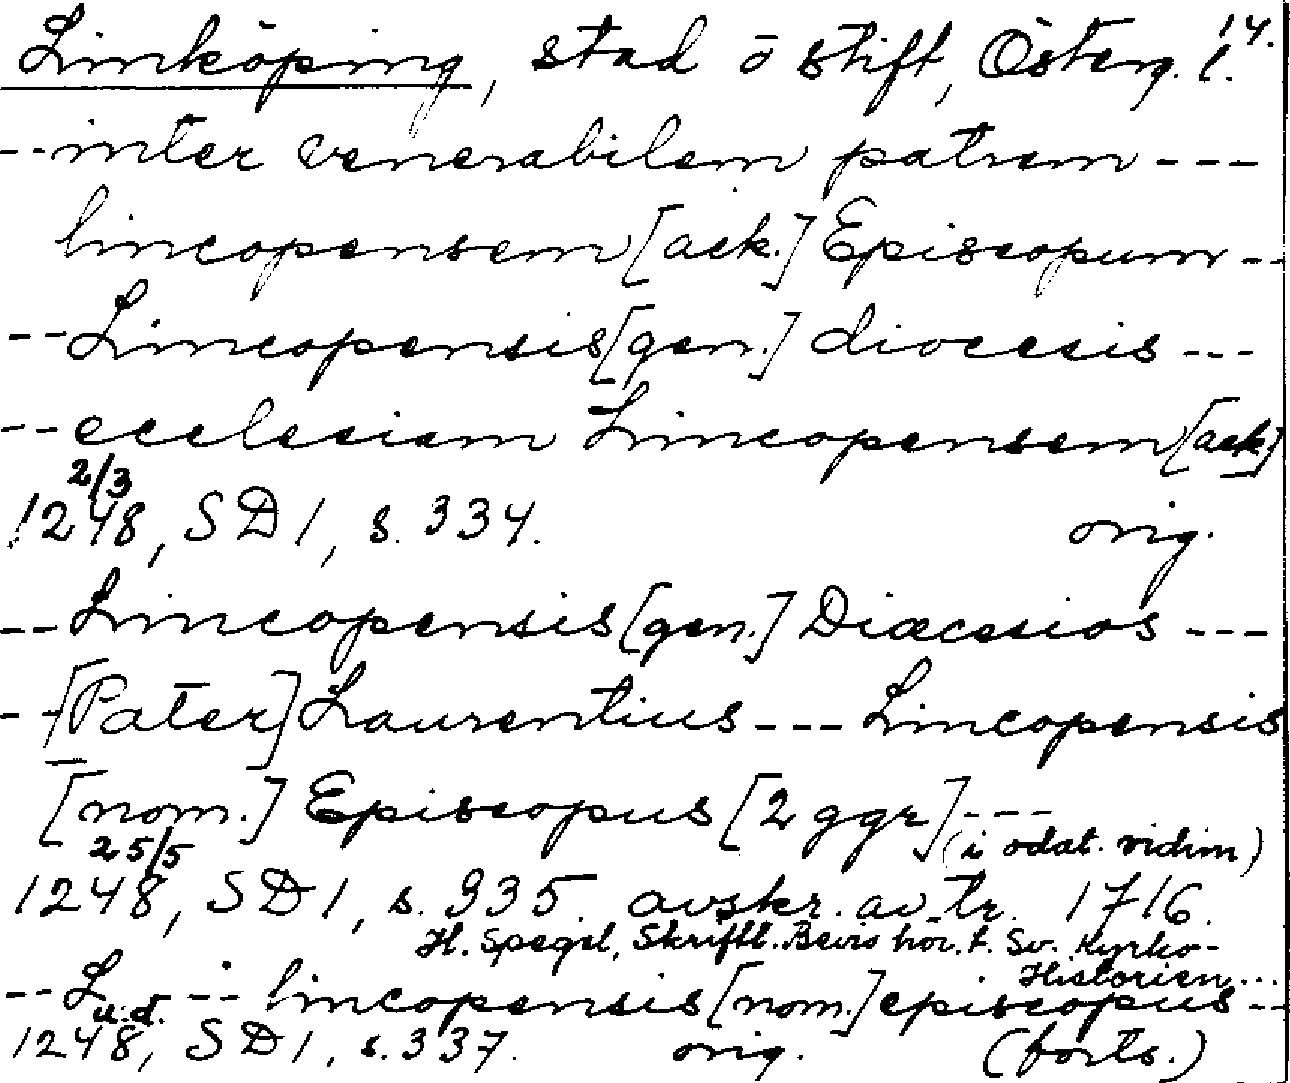 Linköping, stad o stift, Österg. l. 14.
--inter venerabilem patrem ---
lincopensem [ack.] Episcopum --
--Lincopensis [gen.] diocesis ---
--ecclesiam Lincopensem [ack.]
2/3
1248, SD 1, s. 334. orig.
--Lincopensis [gen.] Diœcesios ---
--[Pater] Laurentius --- Lincopensis
[nom.] Episcopus [2 ggr] ---
25/5 (i odat. vidim)
1248, SD 1, s. 335. avskr. av tr. 1716.
H. Spegel, Skriftl. Bevis hör. t. Sv. Kyrko-
Historien...
--L -- lincopensis [nom.] episcopus --
u.d.
1248, SD 1, s. 337. orig. (forts.)